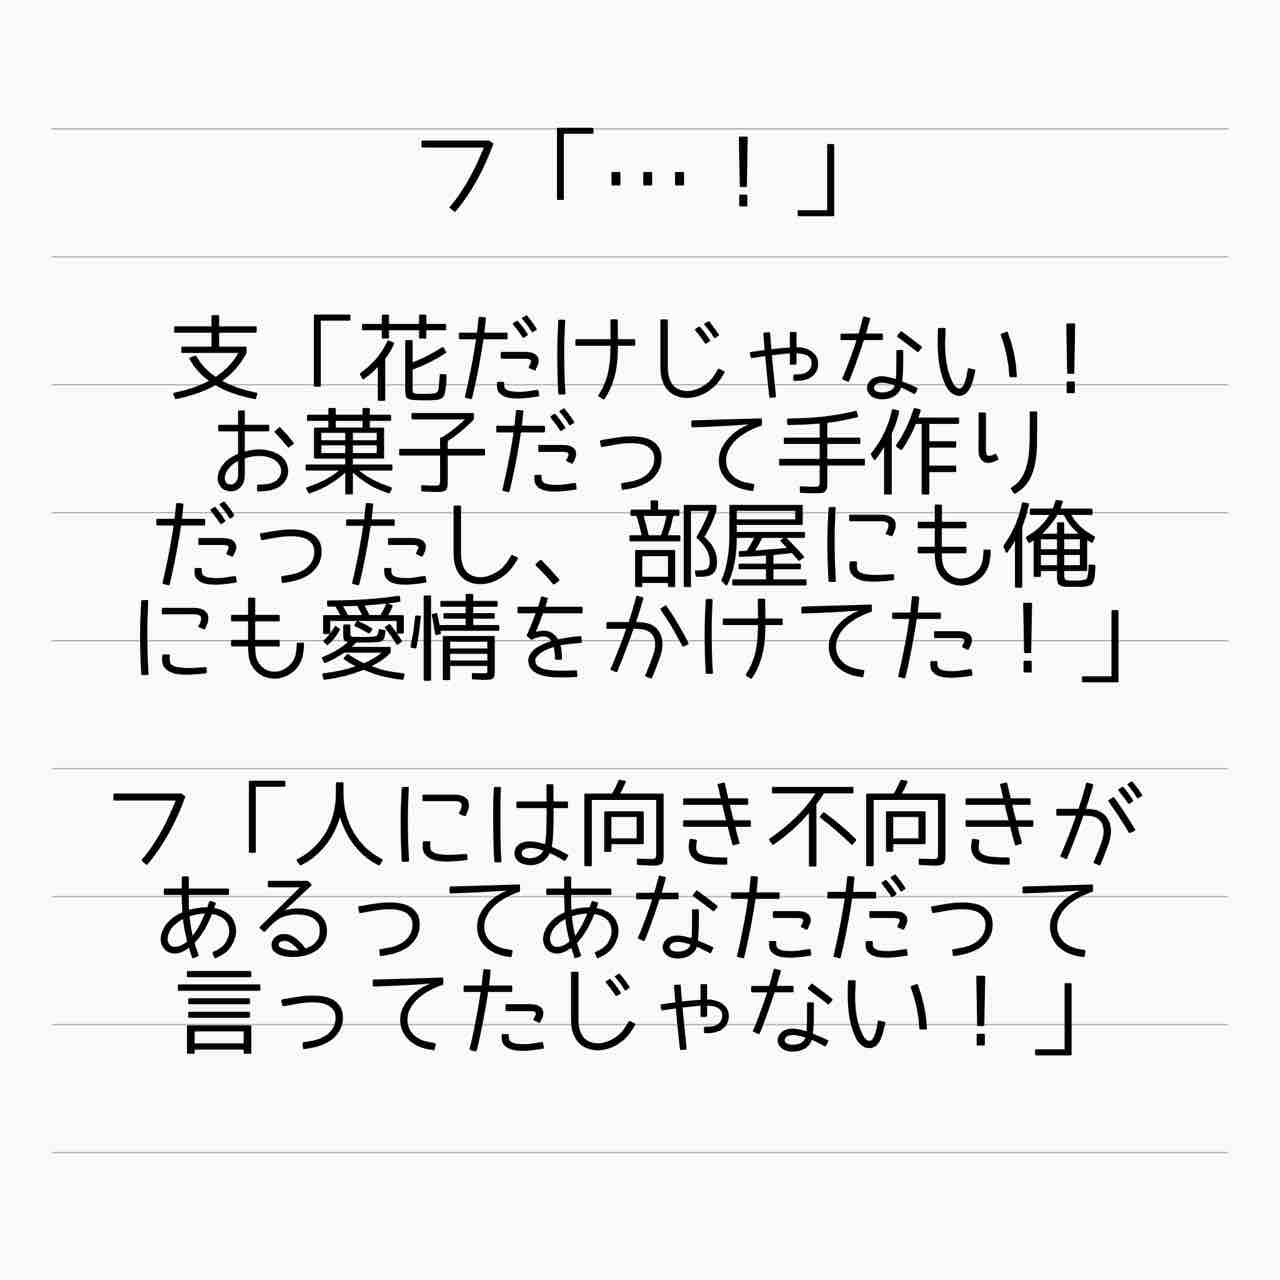 フ「…！」
支「花だけじゃない！
お菓子だって手作り
だったし、部屋にも俺
にも愛情をかけてた！」
フ「人には向き不向きが
あるってあなただって
言ってたじゃない！」